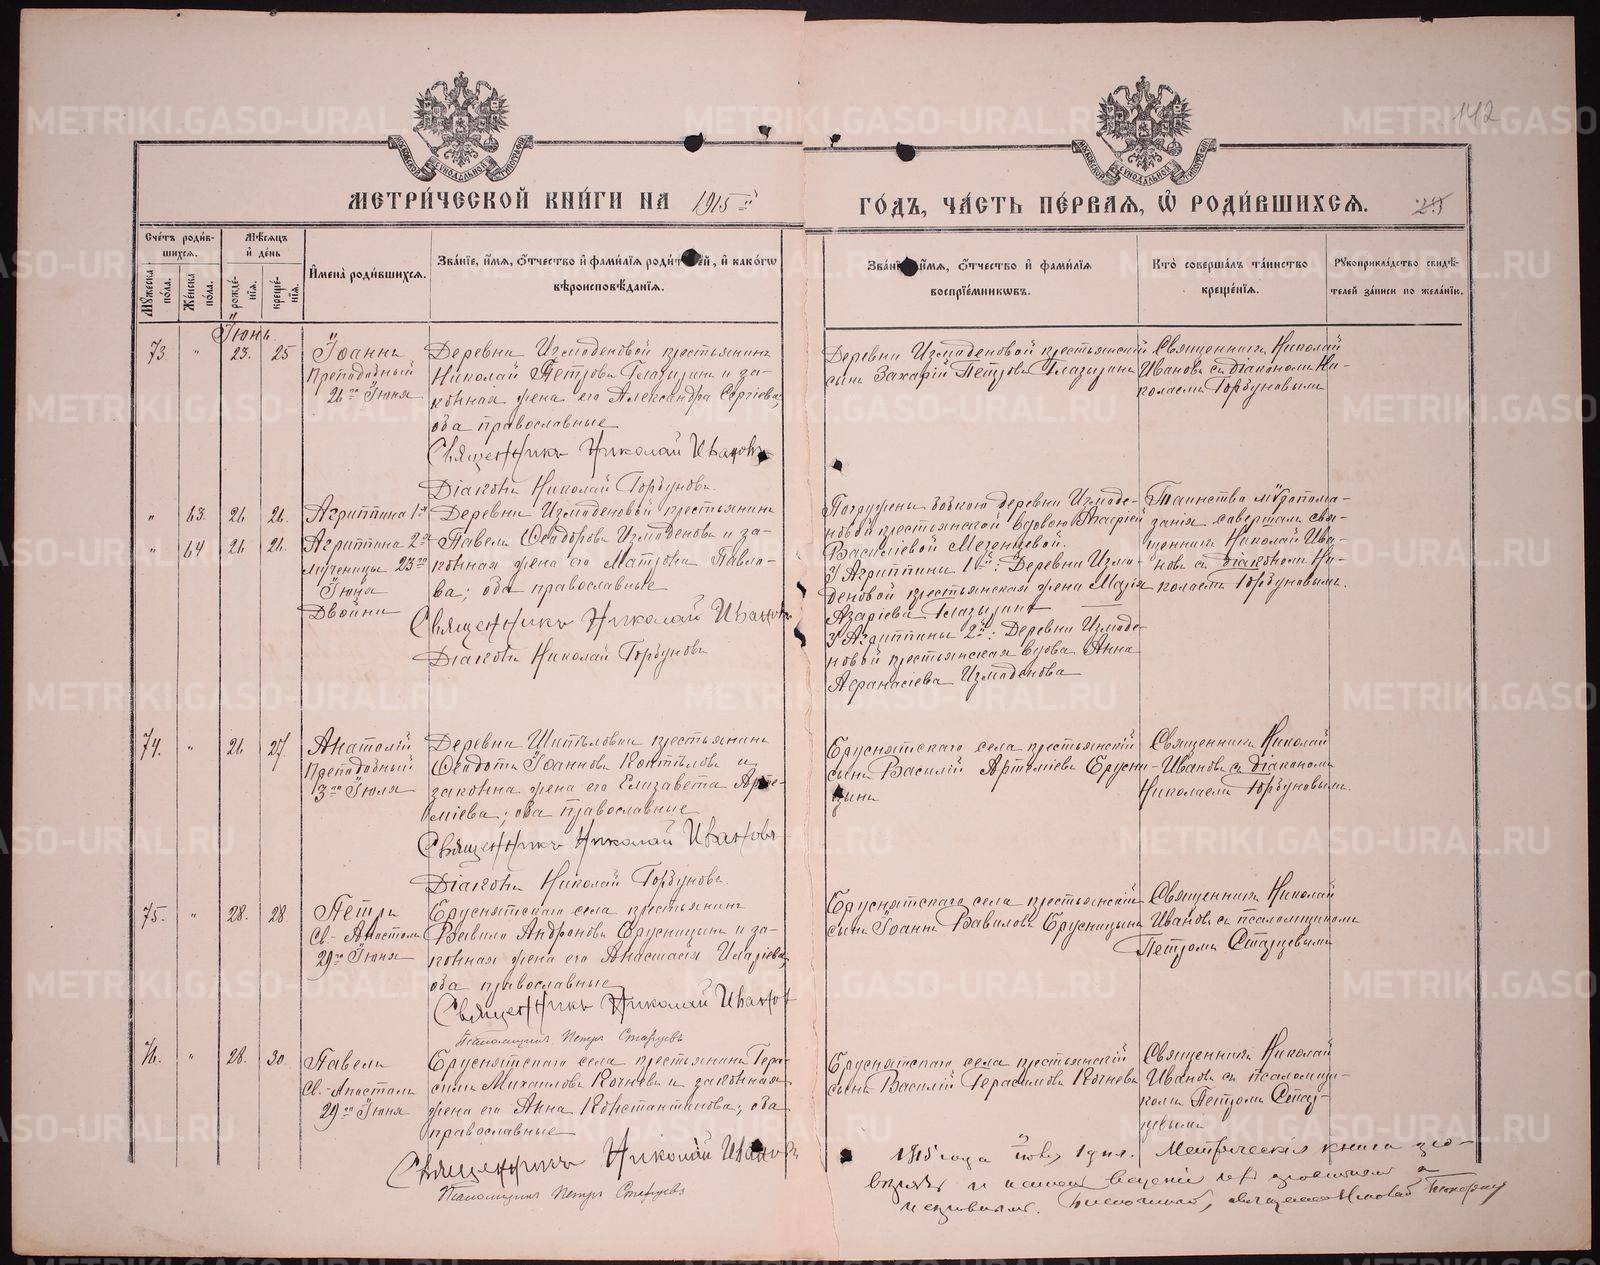 142
МОСКОВСКОЙ СѴНОДАЛЬНОЙ ТИПОГРАФІИ
МОСКОВСКОЙ СѴНОДАЛЬНОЙ ТИПОГРАФІИ
МЕТРИ́ЧЕСКОЙ КНИ́ГИ НА 1915й
ГО́ДЪ, ЧА́СТЬ ПЕ́РВАЯ, Ѽ РОДИ́ВШИХСЯ. 25
Сче́тъ роди́в-
шихся.
Мꙋ́жеска пола.
Же́нска пола.
Мѣ́сяцъ и де́нь
рожде́-
нія.
креще́-
нія.
Имена̀ роди́вшихся.
Зва́ніе, и́мя, ѻ́тчество и фами́лія роди́телей, и како́гѡ
вѣроисповѣ́данія.
Зва́ніе, и́мя, ѻ́тчество и фами́лія
воспріе́мникѡвъ.
Кто̀ соверша́лъ та́инство
креще́нія.
Рꙋкоприкла́дство свидѣ́-
телей за́писи по жела́нію.
Іюнь
73. " 23. 25
Іоаннъ
Преподобный
26го Іюня
Деревни Измоденовой крестьянинъ
Николай Петровъ Глазыринъ и за-
конная жена его Александра Сергіева,
оба православные
Священникъ Николай Ивановъ
Діаконъ Николай Горбуновъ.
Деревни Измоденовой крестьянскій
сынъ Захарій Петровъ Глазыринъ
Священникъ Николай
Ивановъ съ діакономъ Ни-
колаемъ Горбуновымъ
" 63. 26 26.
" 64 26 26.
Агриппина 1я
Агриппина 2я
мученицы 23го
Іюня
Двойни
Деревни Измоденовой крестьянинъ
Павелъ Ѳеодоровъ Измоденовъ и за-
конная жена его Матрона Павло-
ва; оба православные
Священникъ Николай Ивановъ
Діаконъ Николай Горбуновъ
Погружены бабкою деревни Измоде-
новой крестьянской вдовою Агафіей
Василіевой Мезенцевой.
У Агриппины 1й: Деревни Измо-
деновой крестьянская жена Марія
Азаріева Глазырина
У Агриппины 2й: Деревни Измоде-
новой крестьянская вдова Анна
Афанасіева Измоденова
Таинство мѵропома-
занія совершали свя-
щенникъ Николай Ива-
новъ съ діакономъ Ни-
колаемъ Горбуновымъ.
74. " 26 27.
Анатолій
Преподобный
3го Іюля
Деревни Шипѣловки крестьянинъ
Ѳеодотъ Іоанновъ Коптѣловъ и
законна жена его Елизавета Арте-
міева; оба православные
Священникъ Николай Ивановъ
Діаконъ Николай Горбуновъ.
Бруснятскаго села крестьянскій
сынъ Василій Артеміевъ Брусни-
цынъ
Священникъ Николай
Ивановъ съ діакономъ
Николаемъ Горбуновымъ.
75. " 28. 28.
Петръ
Св. Апостолъ
29го Іюня
Бруснятскаго села крестьянинъ
Вавила Андроновъ Брусницынъ и за-
конная жена его Анастасія Иларіева,
оба православные
Священникъ Николай Иванов
Псаломщикъ Петръ Старцевъ
Бруснятскаго села крестьянскій
сынъ Іоаннъ Вавиловъ Брусницынъ
Священникъ Николай
Ивановъ съ псаломщикомъ
Петромъ Старцевымъ
76. " 28. 30.
Павелъ
Св. Апостолъ
29го Іюня
Бруснятскаго села крестьянинъ Гера-
симъ Михаиловъ Кочневъ и законная
жена его Анна Константинова; оба
православные
Священникъ Николай Ивановъ
Псаломщикъ Петръ Старцевъ
Бруснятскаго села крестьянскій
сынъ Василій Герасимовъ Кочневъ
Священникъ Николай
Ивановъ съ псаломщи-
комъ Петромъ Стар-
цевымъ
1915 года 1 дня. Метрическія книга
METRIKI.GASO-URAL.RU